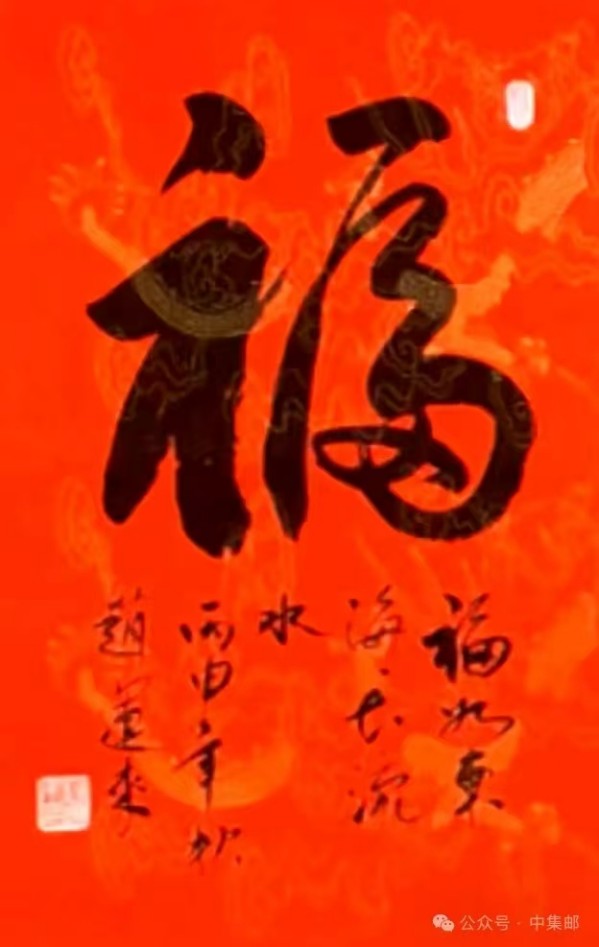 福
福如東
海长流
水
丙申年秋
趙
公众号·中集邮